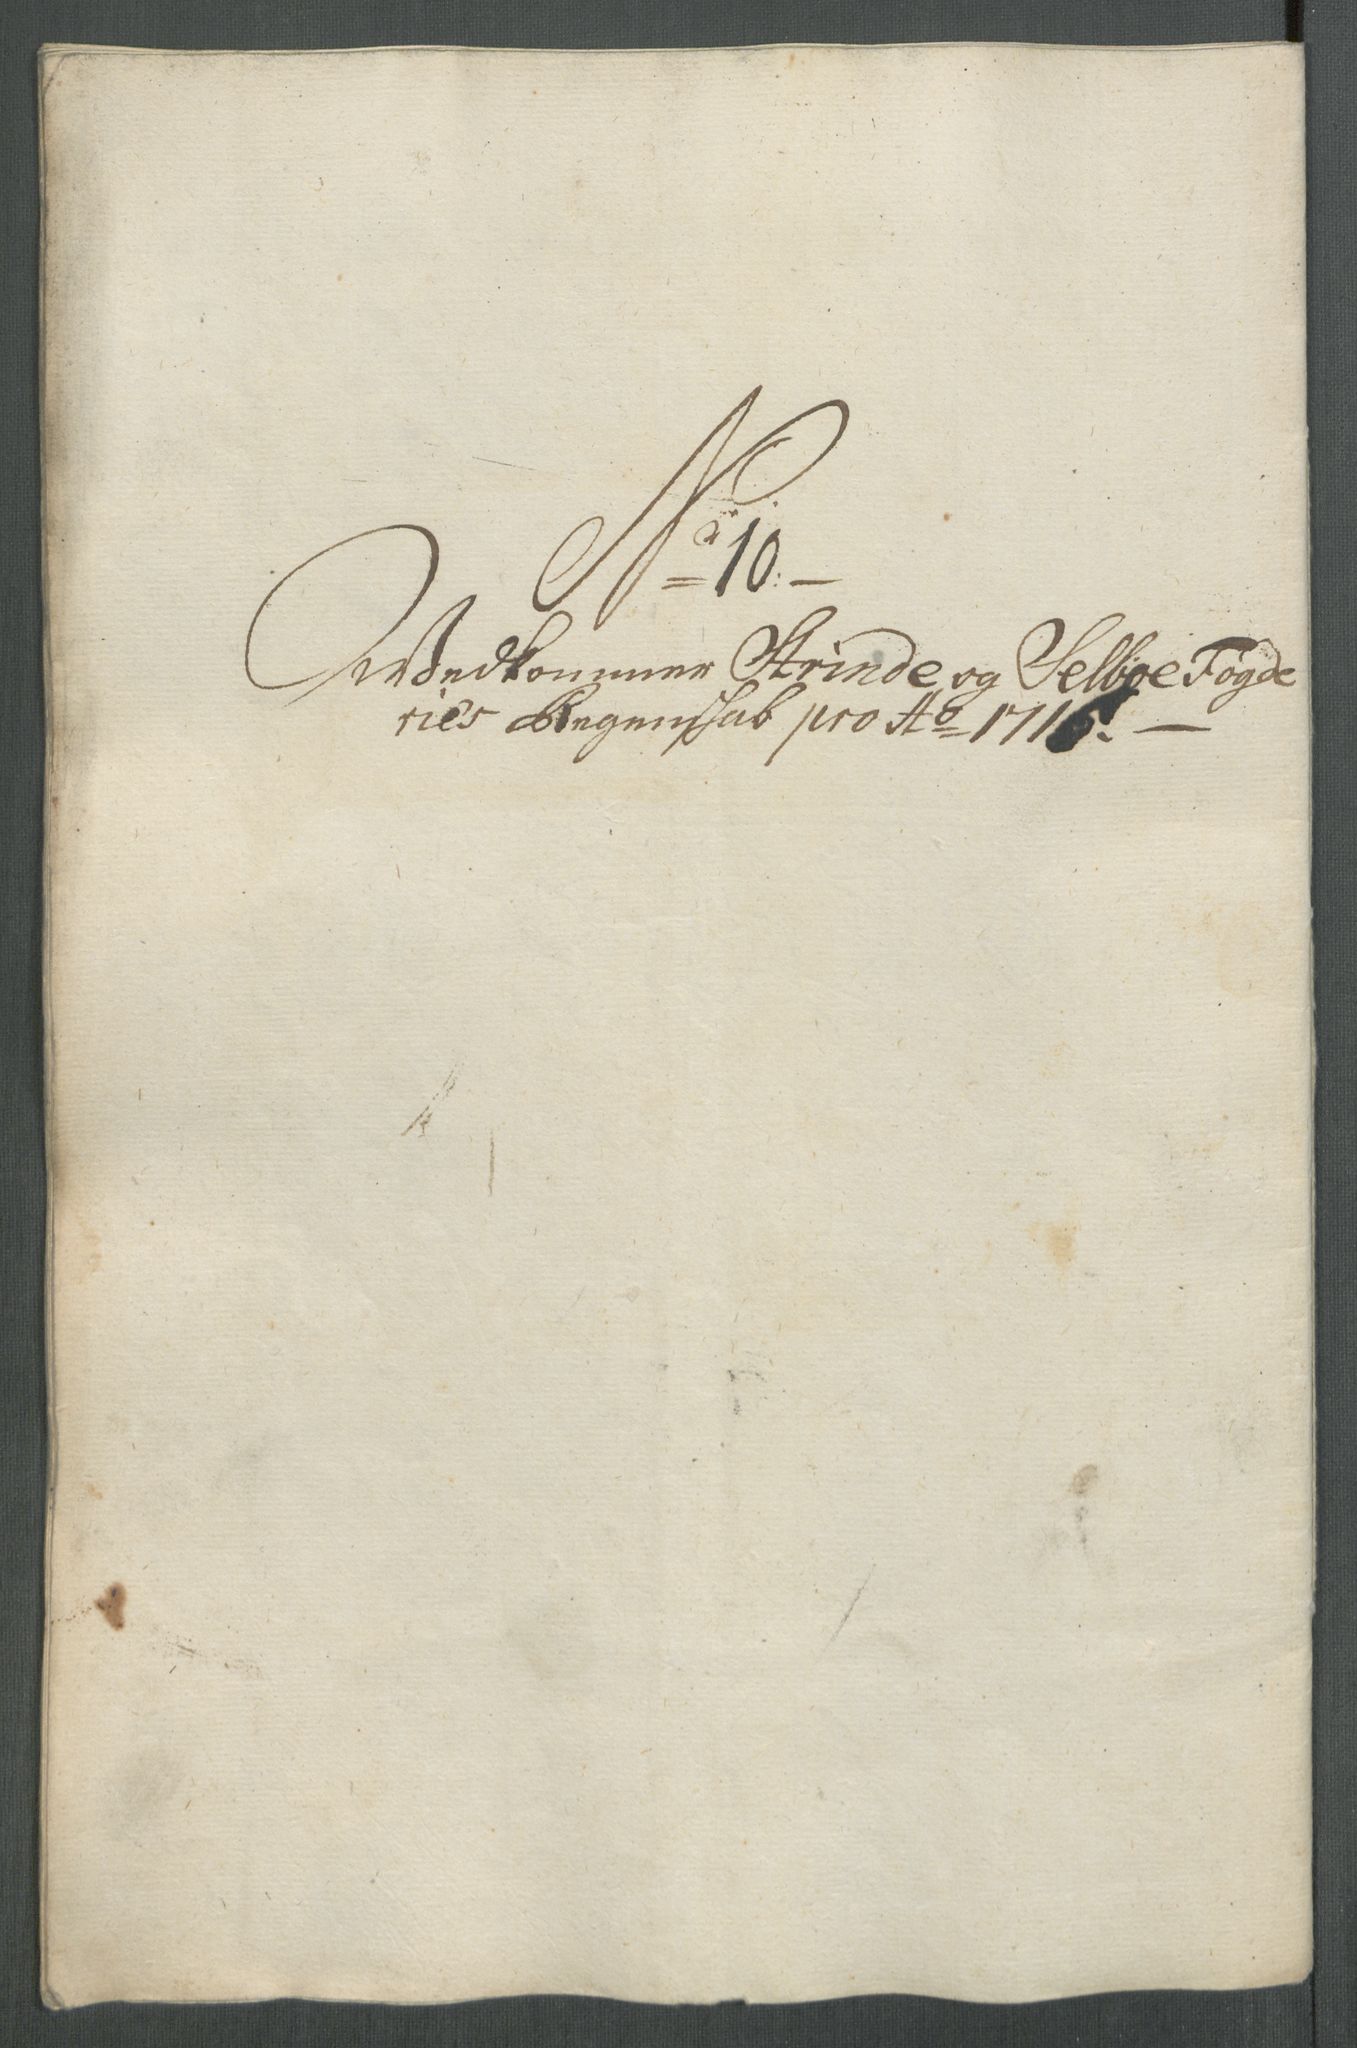 No 10.
Wedkommer Strinde og Selboe Fogde
ries Regenschab pro Ao 1716.